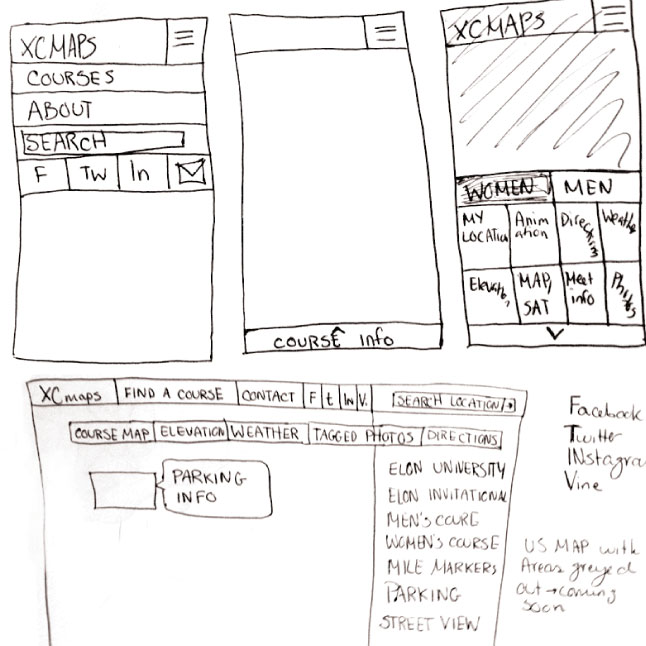 XCMAPS
COURSES
ABOUT
SEARCH
F TW In
COURSE Info
XCMAPS
WOMEN MEN
MY LOCATION
Anim ation
Directions
Weather
Elevation
MAP, SAT
Meet info
Photos
XCmaps FIND A COURSE CONTACT F t IN V. SEARCH LOCATION
COURSE MAP ELEVATION WEATHER TAGGED PHOTOS DIRECTIONS
PARKING
INFO
ELON UNIVERSITY
ELON INVITATIONAL
MEN'S COURE
WOMEN'S COURSE
MILE MARKERS
PARKING
STREET VIEW
Facebook
Twitter
INstagra
Vine
US MAP with
Areas greyed
out → coming
soon